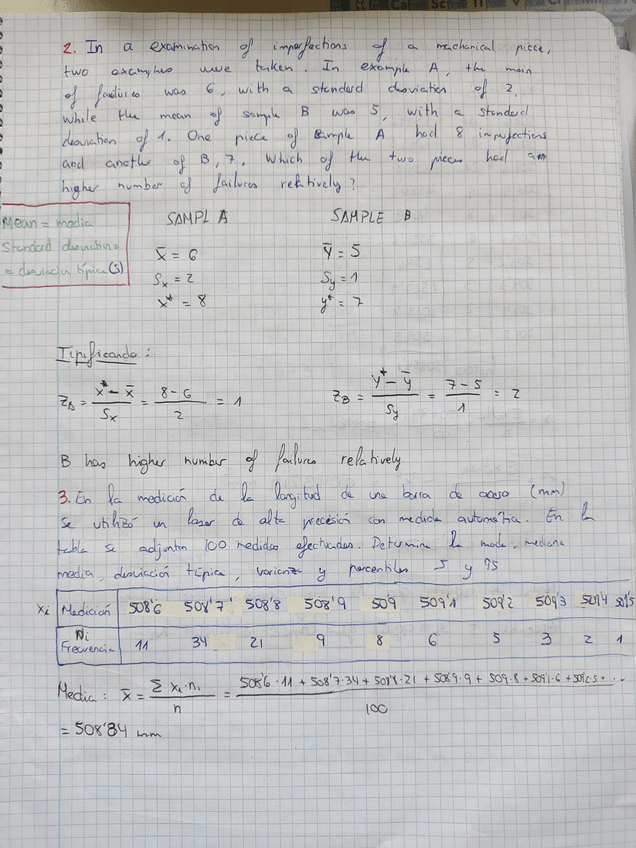 2. In a examination of imperfections of a machanical piece,
two examples were taken. In example A, the main
of failures was 6, with a standard desviation of 2,
while the mean of sample B was 5, with a standard
desviation of 1. One piece of sample A had 8 imperfections
and another of B, 7. Which of the two pieces had an
higher number of failures relatively?
Mean = media
Standard desviation =
= desviación típica (s)
SAMPL A
SAMPLE B
x̄ = 6
ȳ = 5
Sx = 2
Sy = 1
x* = 8
y* = 7
Tipificando:
zA = (x* - x̄) / Sx = (8 - 6) / 2 = 1
zB = (y* - ȳ) / Sy = (7 - 5) / 1 = 2
B has higher number of failures relatively
3. En la medición de la longitud de una barra de acero (mm)
se utilizó un laser de alta precisión con medida automática. En la
tabla se adjuntan 100 medidas efectuadas. Determina la moda, mediana
media, desviación típica, varianza y percentiles 5 y 95
xi Medición 508'6 508'7 508'8 508'9 509 509'1 509'2 509'3 509'4 509'5
Ni
Frecuencia 11 34 21 9 8 6 5 3 2 1
Media: x̄ = Σ xi·ni / n = 508'6·11 + 508'7·34 + 508'8·21 + 508'9·9 + 509·8 + 509'1·6 + 509'2·5 + ... / 100
= 508'84 mm